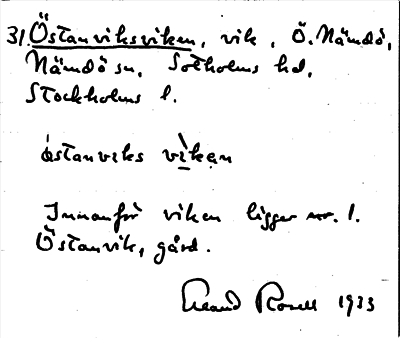 31. Östanviksviken, vik, Ö. Nämdö,
Nämdö sn. Sotholms hd.
Stockholms l.
östanviks vìken
Innanför viken ligger nr. 1.
Östanvik, gård.
Erland Rosell 1933